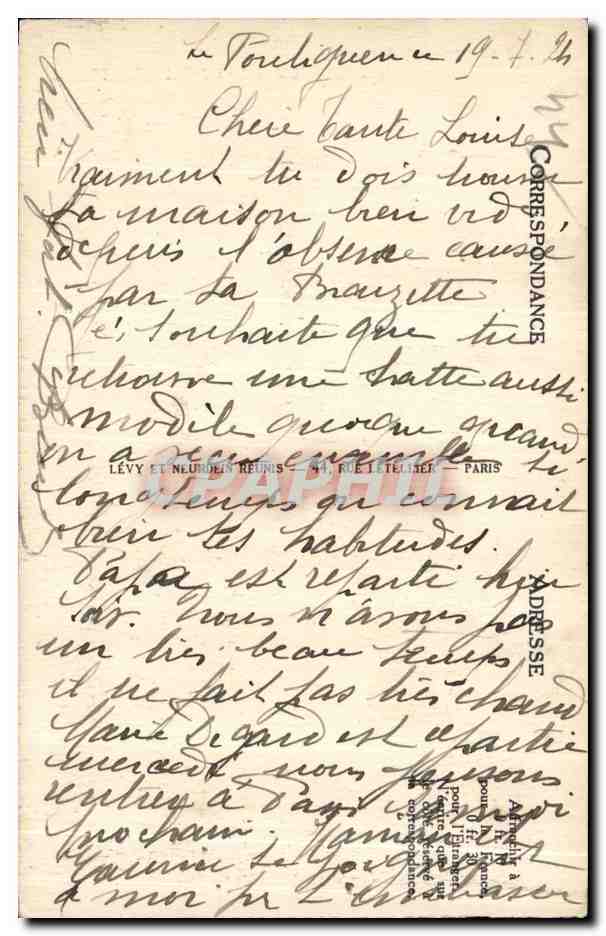 Le Pouliguen le 19-7-24
Chère Tante Louise
Vraiment tu dois trouver
ta maison bien vide
depuis l'absence causée
par ta
souhaite que tu
retrouve une chatte aussi
modèle quoique quand
on a vécu ensemble si
longtemps on connait
bien tes habitudes.
Papa est reparti hier
soir. Nous n'avons pas
un très beau temps
il ne fait pas très chaud
Marie Degard est repartie
mercredi nous pensons
rentrer à Paris
prochain. Maman
Maurice se
à moi pr t'embrasser
CORRESPONDANCE
ADRESSE
LÉVY ET NEURDEIN RÉUNIS — 44, RUE LETELLIER — PARIS
Affranchir à
pour la France,
0 fr. 30
pour l'Étranger,
n'écrire que sur
le côté réservé à
la correspondance
CPAPHIL